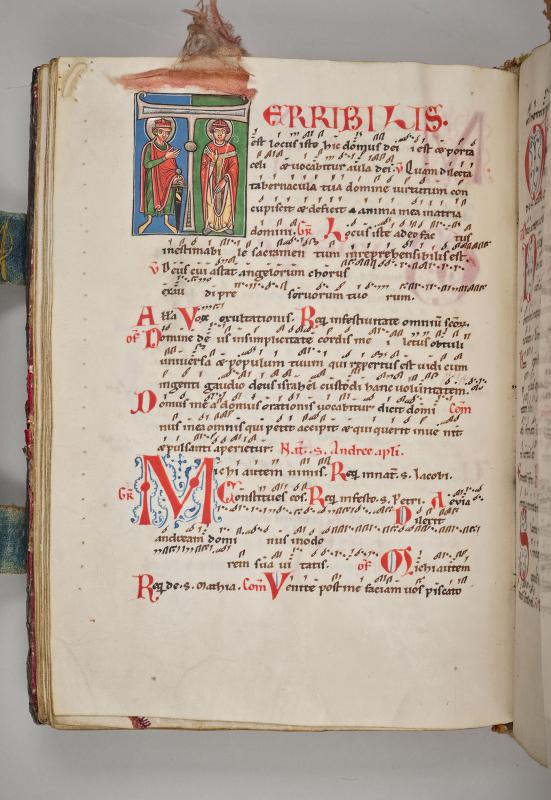 TERRIBILIS.
est locus iste hic domus dei est et porta
celi et vocabitur aula dei. V Quam dilecta
tabernacula tua domine virtutum con
cupiscit et deficit anima mea in atria
domini. Gr Locus iste a deo fac tus
inestimabi le sacramen tum inreprehensibilis est.
V Deus cui astat angelorum chorus
exau di pre servorum tuo rum.
Alla Vox exultationis. Req in festivitate omniu scoꝝ.
of Domine de us in simplicitate cordis me i letus obtuli
universa et populum tuum qui repertus est vidi cum
ingenti gaudio deus israhel custodi hanc voluntatem.
Domus mea domus orationis vocabitur dicit domi Com
nus in ea omnis qui petit accipit et qui querit inve nit
et pulsanti aperietur. Nat. s. Andree apli.
Michi autem nimis. Req in nat. s. Iacobi.
Gr Constitues eos. Req in festo. s. Petri. Alleuia
Dilexit
andream domi nus in odo
rem sua vi tatis. of Michi autem
Req de. s. Mathia. Com Venite post me faciam vos piscato